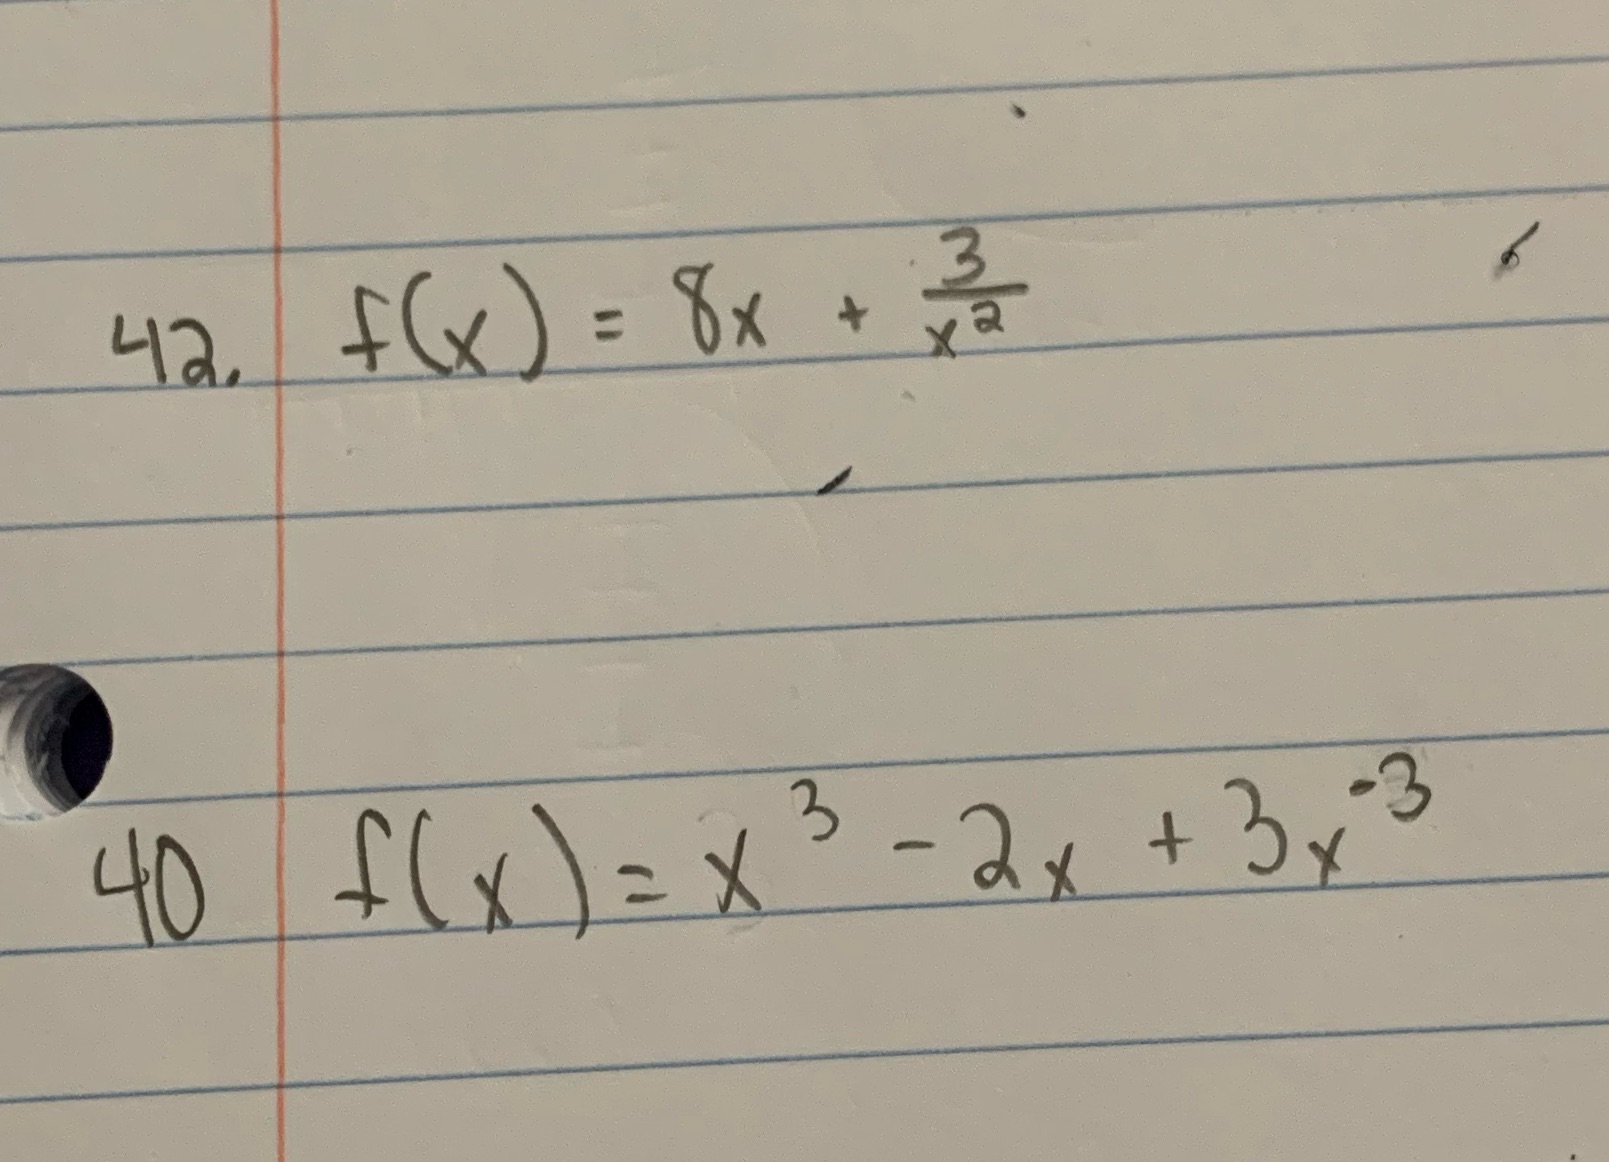 42. f(x) = 8x + 3/x²
40 f(x) = x³ - 2x + 3x⁻³